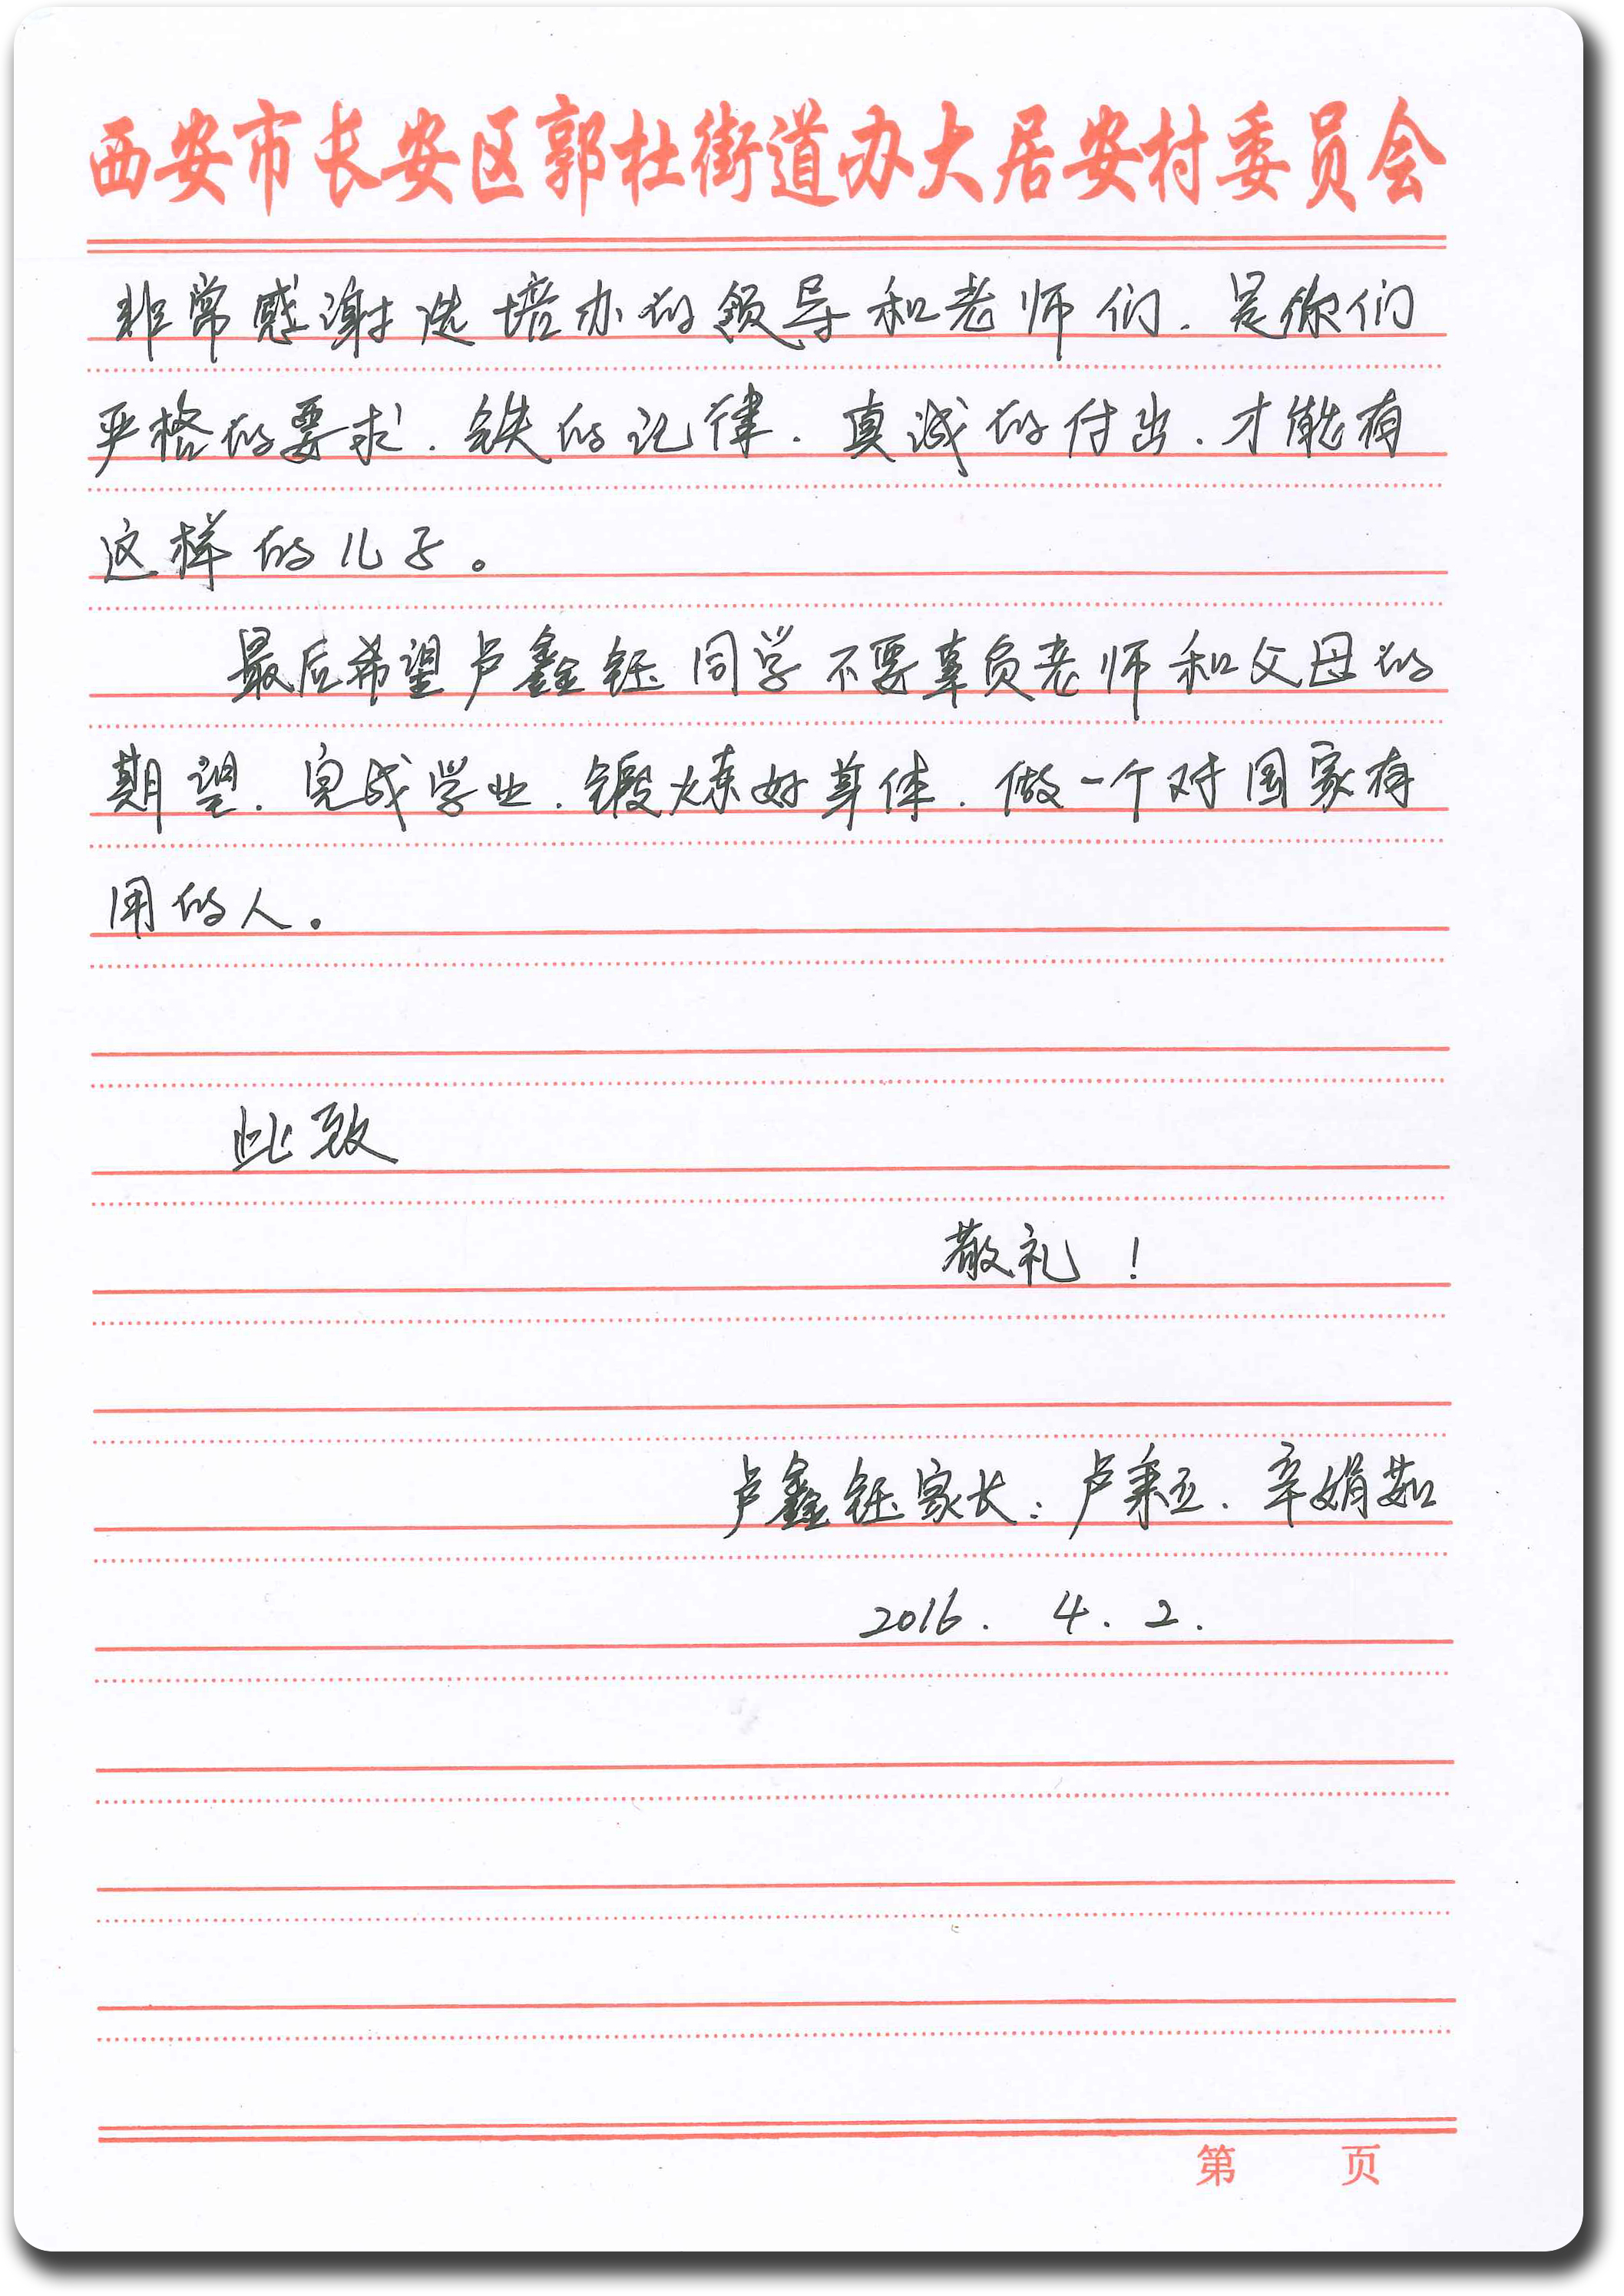 西安市长安区郭杜街道办大居安村委员会
非常感谢选培办的领导和老师们.是你们
严格的要求.铁的记律.真诚的付出.才能有
这样的儿子。
最后希望卢鑫钰同学不要辜负老师和父母的
期望.完成学业.锻炼好身体.做一个对国家有
用的人。
此致
敬礼!
卢鑫钰家长:卢秉亚.辛娟茹
2016. 4. 2.
第 页